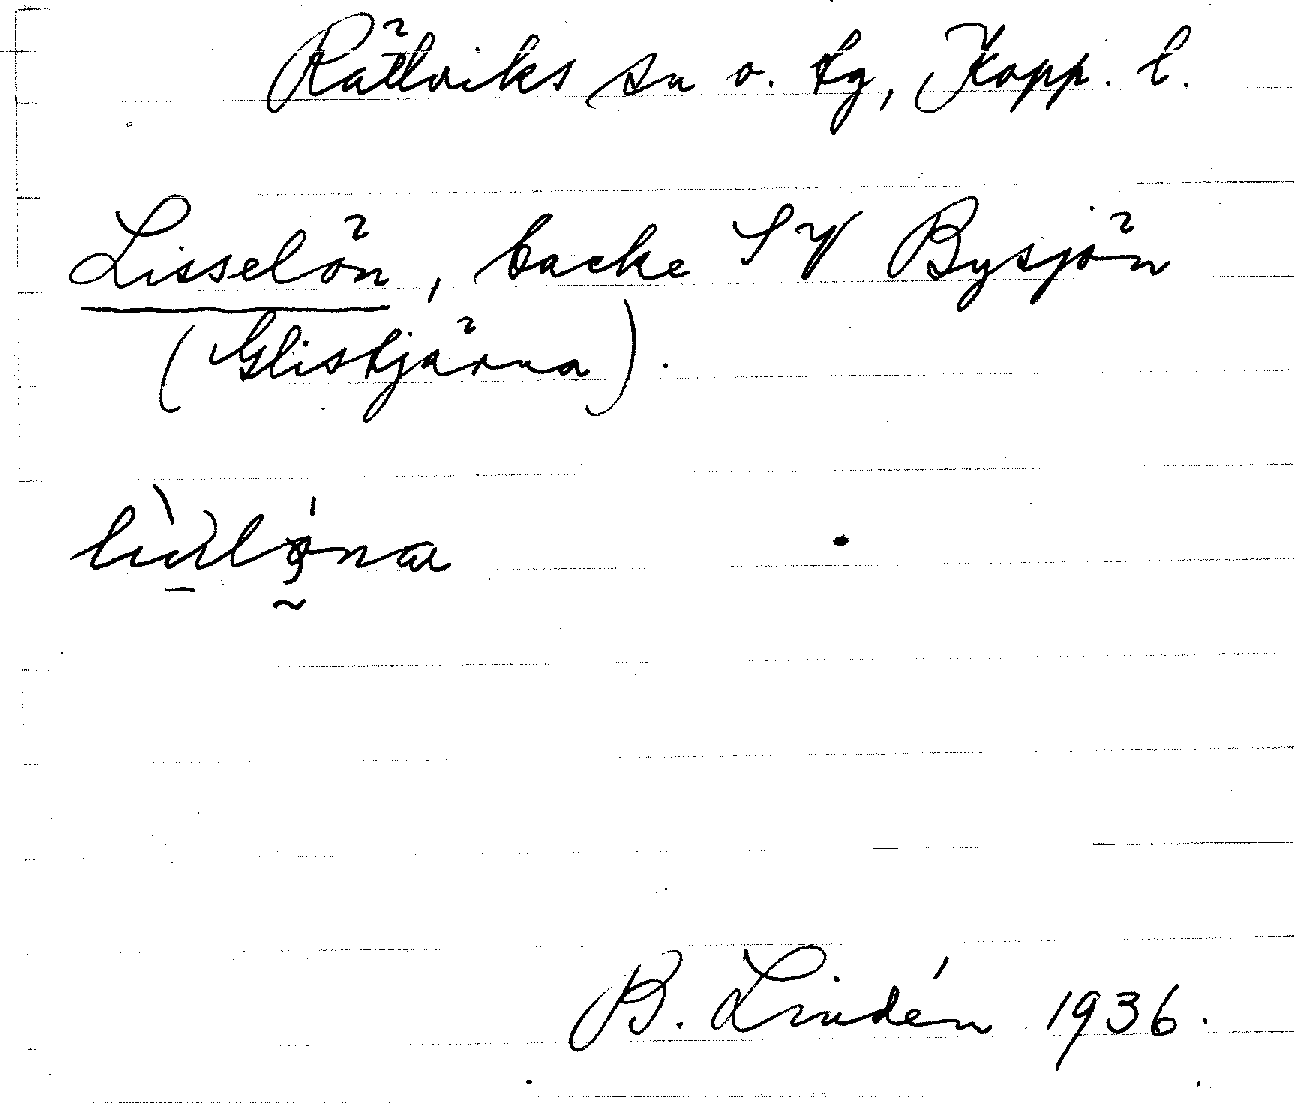 Rättviks sn o. tg, Kopp. l.
Lisselön, backe SV Bysjön
(Glistjärna).
B. Lindén 1936.